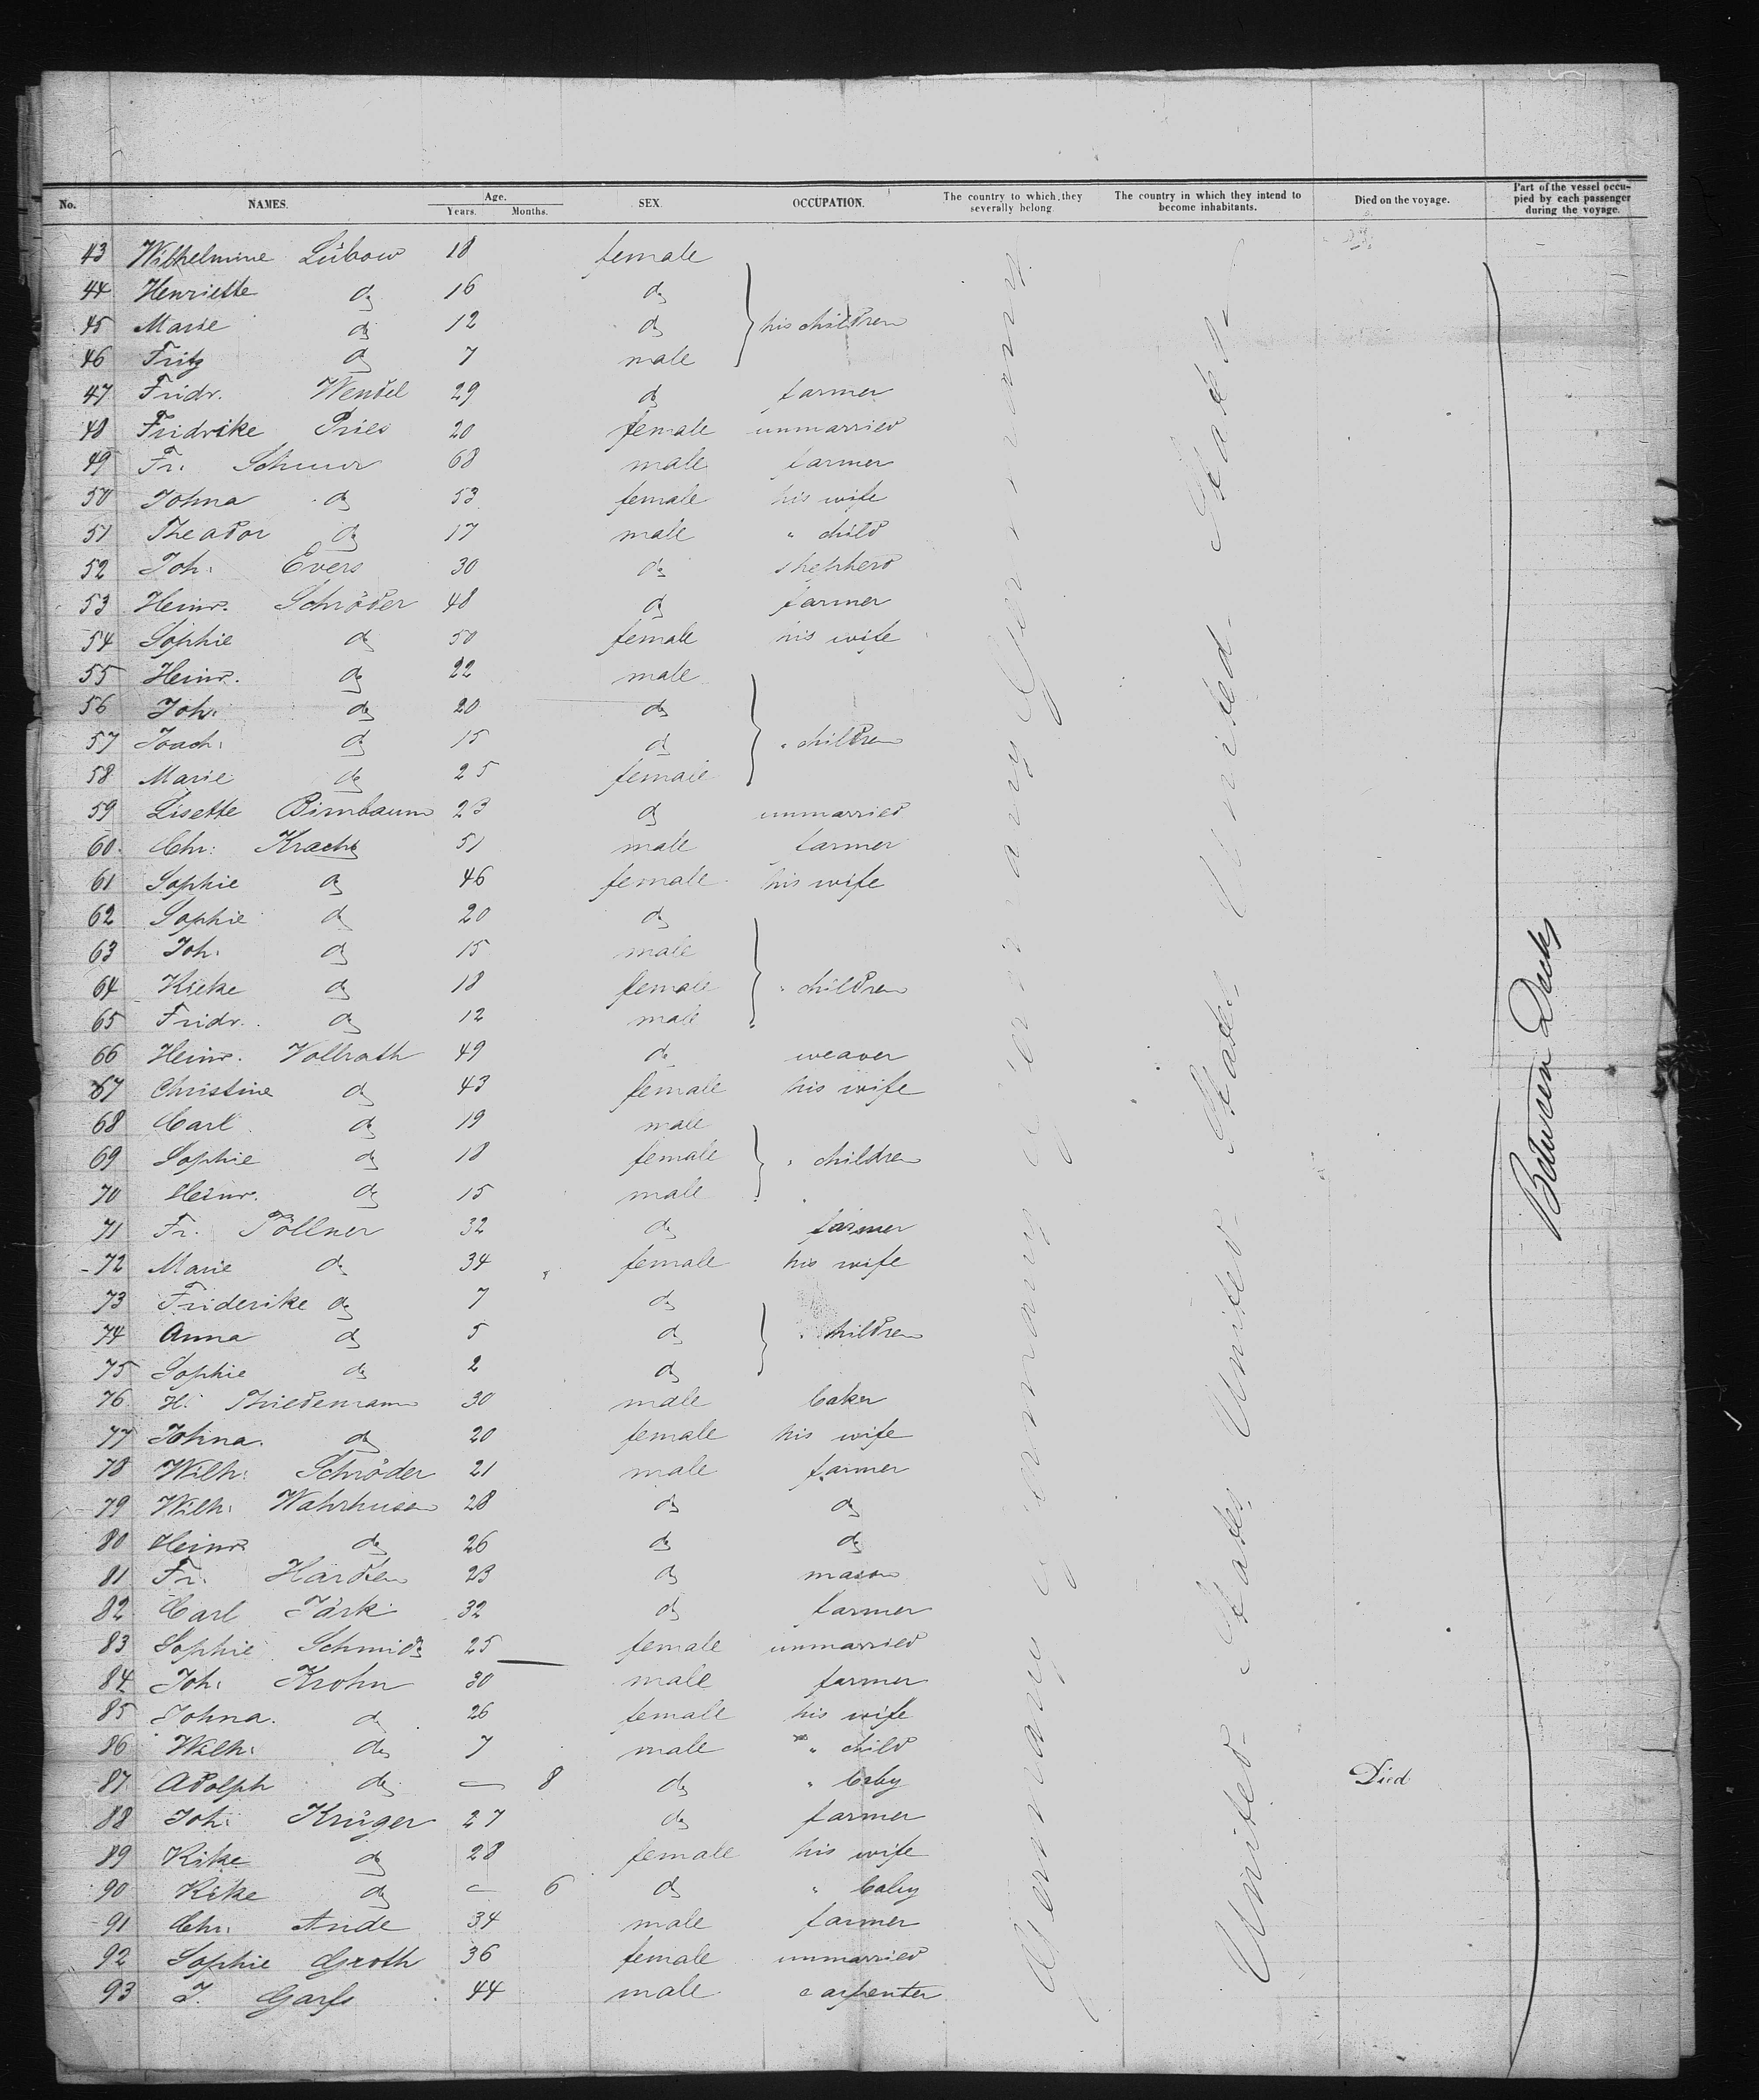 No. NAMES. Age. Years. Months. SEX. OCCUPATION. The country to which they severally belong. The country in which they intend to become inhabitants. Died on the voyage. Part of the vessel occupied by each passenger during the voyage.
43 Wilhelmine Lübow 18 female
44 Henriette do 16 do
45 Marie do 12 do his children
46 Fritz do 7 male
47 Fridr. Wendel 29 do farmer
48 Fridrike Pries 20 female unmarried
49 Fr. Schuur 68 male farmer
50 Johna do 53 female his wife
51 Theador do 17 male " child
52 Joh. Evers 30 do shepherd
53 Heinr. Schröder 48 do farmer
54 Sophie do 50 female his wife
55 Heinr. do 22 male
56 Joh. do 20 do
57 Joach. do 15 do " children
58 Marie do 25 female
59 Lisette Birnbaum 23 do unmarried
60 Chr. 51 male farmer
61 Sophie do 46 female his wife
62 Sophie do 20 do
63 Joh. do 15 male
64 Rieke do 18 female " children
65 Fridr. do 12 male
66 Heinr. Vollrath 49 do weaver
67 Christine do 43 female his wife
68 Carl do 19 male
69 Sophie do 18 female " children
70 Heinr. do 15 male
71 Fr. Töllner 32 do farmer
72 Marie do 34 female his wife
73 Friderike do 7 do
74 Anna do 5 do " children
75 Sophie do 2 do
76 H. Thiedemann 30 male baker
77 Johna. do 20 female his wife
78 Wilh. Schröder 21 male farmer
79 Wilh. Wahrhusen 28 do do
80 Heinr. do 26 do do
81 Fr. Harden 23 do mason
82 Carl Järk 32 do farmer
83 Sophie Schmidt 25 female unmarried
84 Joh. Krohn 30 male farmer
85 Johna. do 26 female his wife
86 Wilh. do 7 male " child
87 Adolph do — 8 do " baby Died
88 Joh. Krüger 27 do farmer
89 Rike do 28 female his wife
90 Rike do — 6 do " baby
91 Chr. Ande 34 male farmer
92 Sophie Groth 36 female unmarried
93 J. Garfs 44 male carpenter
Germany Germany Germany
United States United States United States
Between Decks